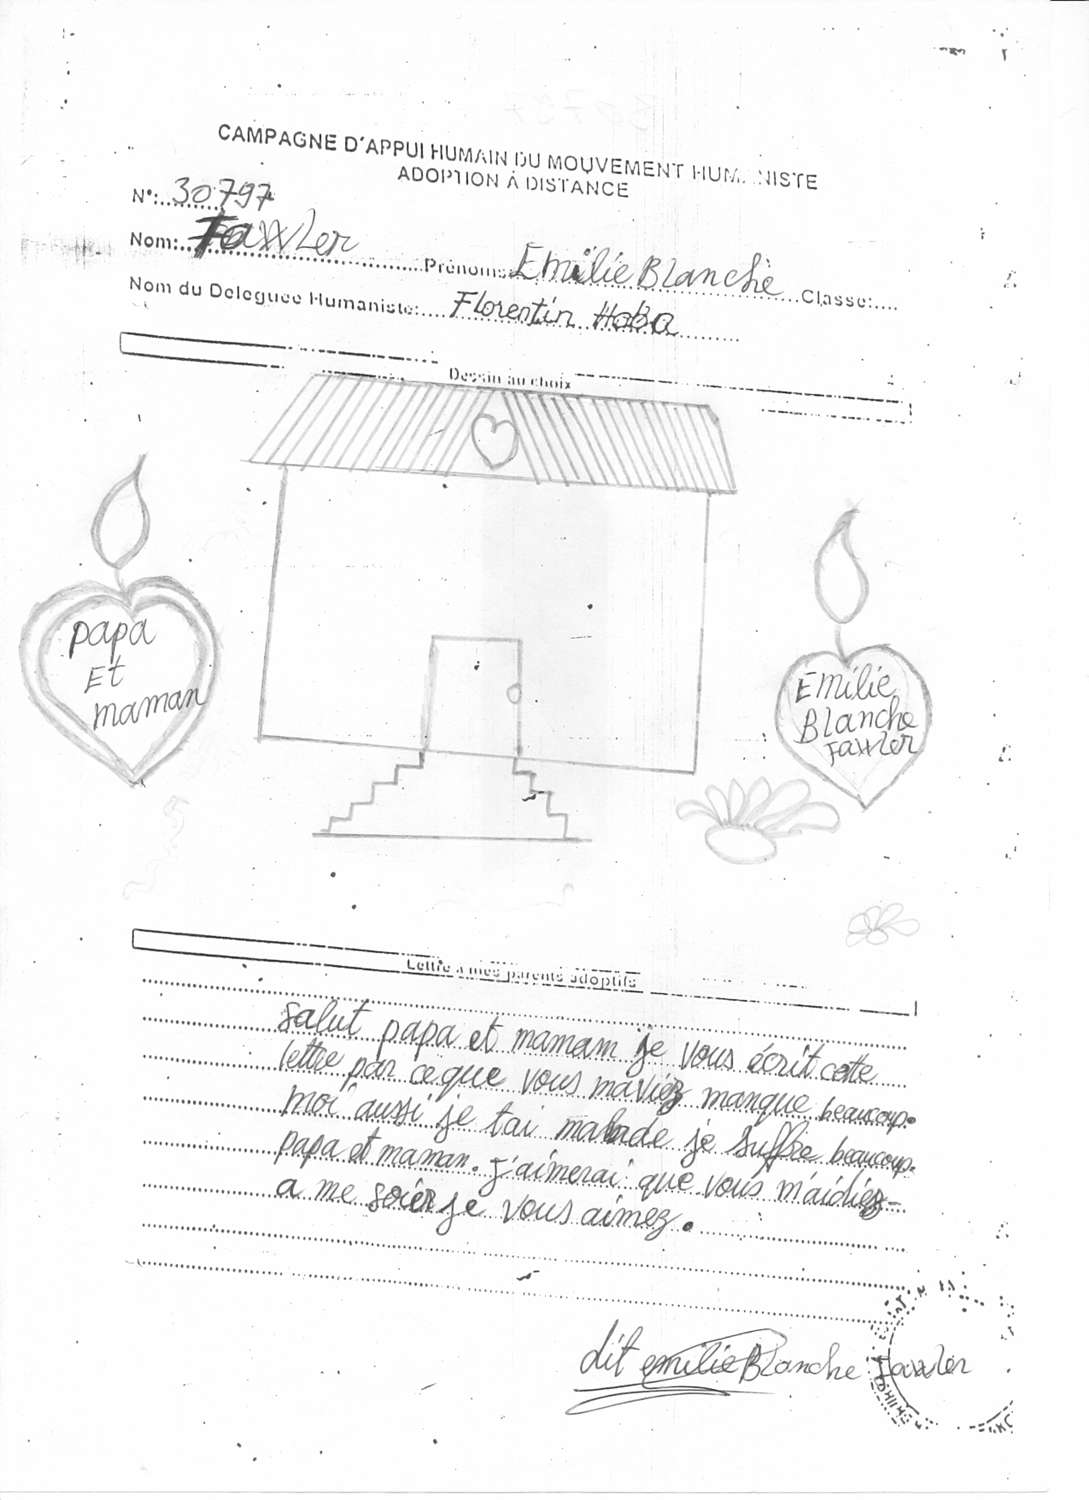 CAMPAGNE D'APPUI HUMAIN DU MOUVEMENT HUMANISTE
ADOPTION À DISTANCE
N°: 30797
Nom: Faxxler Prénoms: Emilie Blanche Classe:
Nom du Deleguee Humaniste: Florentin Hoba
Dessin au choix
papa
Et
maman
Emilie
Blanche
Faxxler
Lettre a mes parents adoptifs
salut papa et mamam je vous écrit cette
lettre par ceque vous maviez manque beaucoup.
moi aussi je tai malade je suffre beaucoup.
papa et maman. J'aimerai que vous m'aidiez-
a me soier je vous aimez.
dit emilie Blanche Faxxler